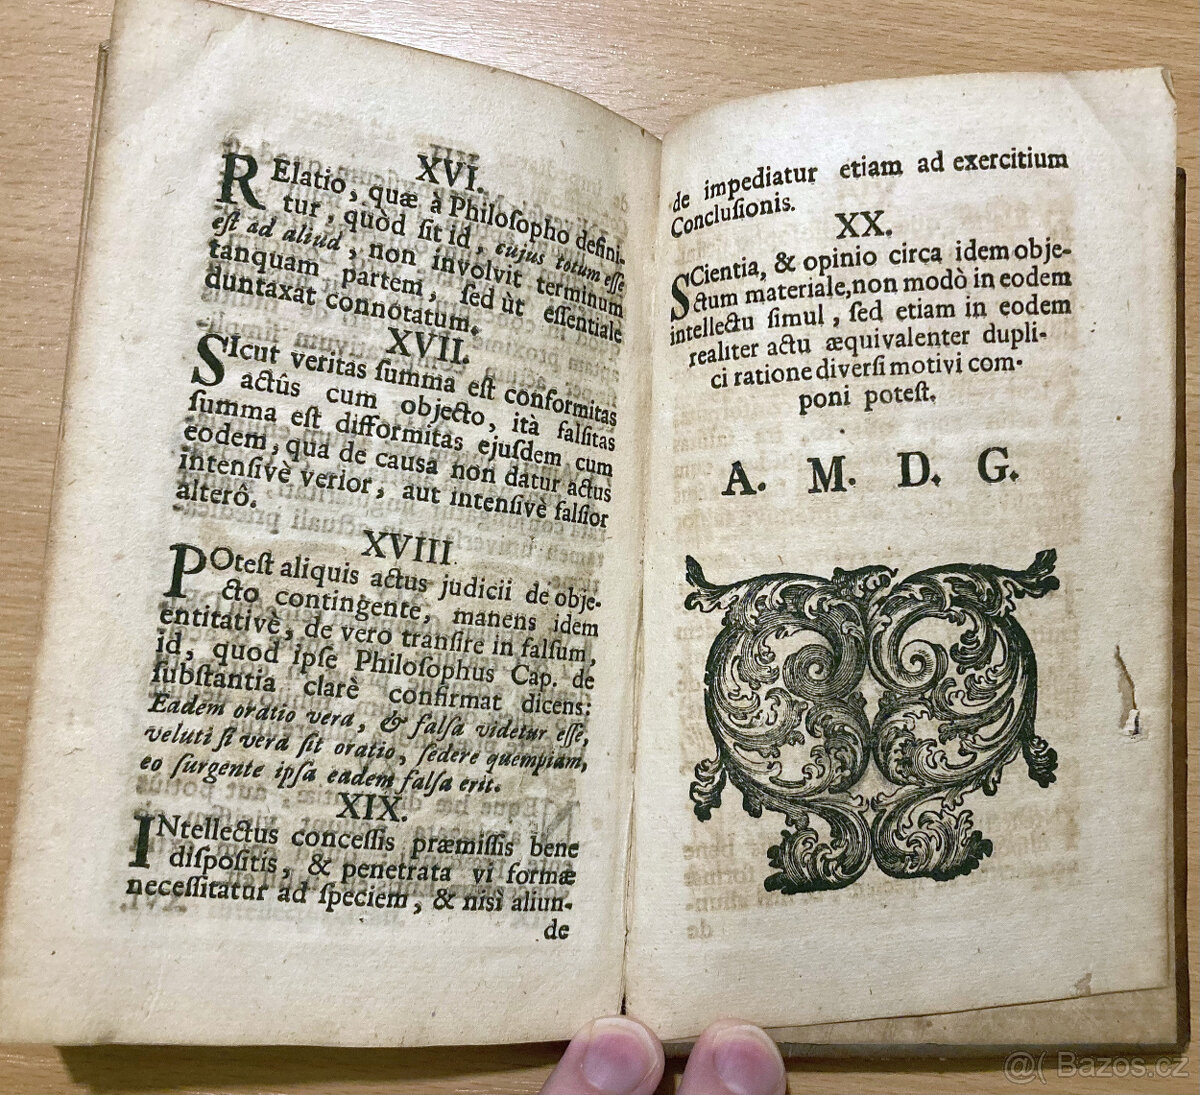 XVI.
RElatio, quæ à Philoſopho defini-
tur, quòd ſit id, cujus totum eſſe
eſt ad aliud, non involvit terminum
tanquam partem, ſed ùt eſſentiale
duntaxat connotatum.
XVII.
SIcut veritas ſumma eſt conformitas
actûs cum objecto, ità falſitas
ſumma eſt difformitas ejuſdem cum
eodem, qua de cauſa non datur actus
intenſivè verior, aut intenſivè falſior
alterô.
XVIII
POteſt aliquis actus judicii de obje-
cto contingente, manens idem
entitativè, de vero tranſire in falſum,
id, quod ipſe Philoſophus Cap. de
ſubſtantia clarè confirmat dicens:
Eadem oratio vera, & falſa videtur eſſe,
veluti ſi vera ſit oratio, ſedere quempiam,
eo ſurgente ipſa eadem falſa erit.
XIX.
INtellectus conceſſis præmiſſis bene
diſpoſitis, & penetrata vi formæ
neceſſitatur ad ſpeciem, & niſi aliun-
de
de impediatur etiam ad exercitium
Concluſionis.
XX.
SCientia, & opinio circa idem obje-
ctum materiale, non modò in eodem
intellectu ſimul, ſed etiam in eodem
realiter actu æquivalenter dupli-
ci ratione diverſi motivi com-
poni poteſt.
A. M. D. G.
@( Bazos.cz